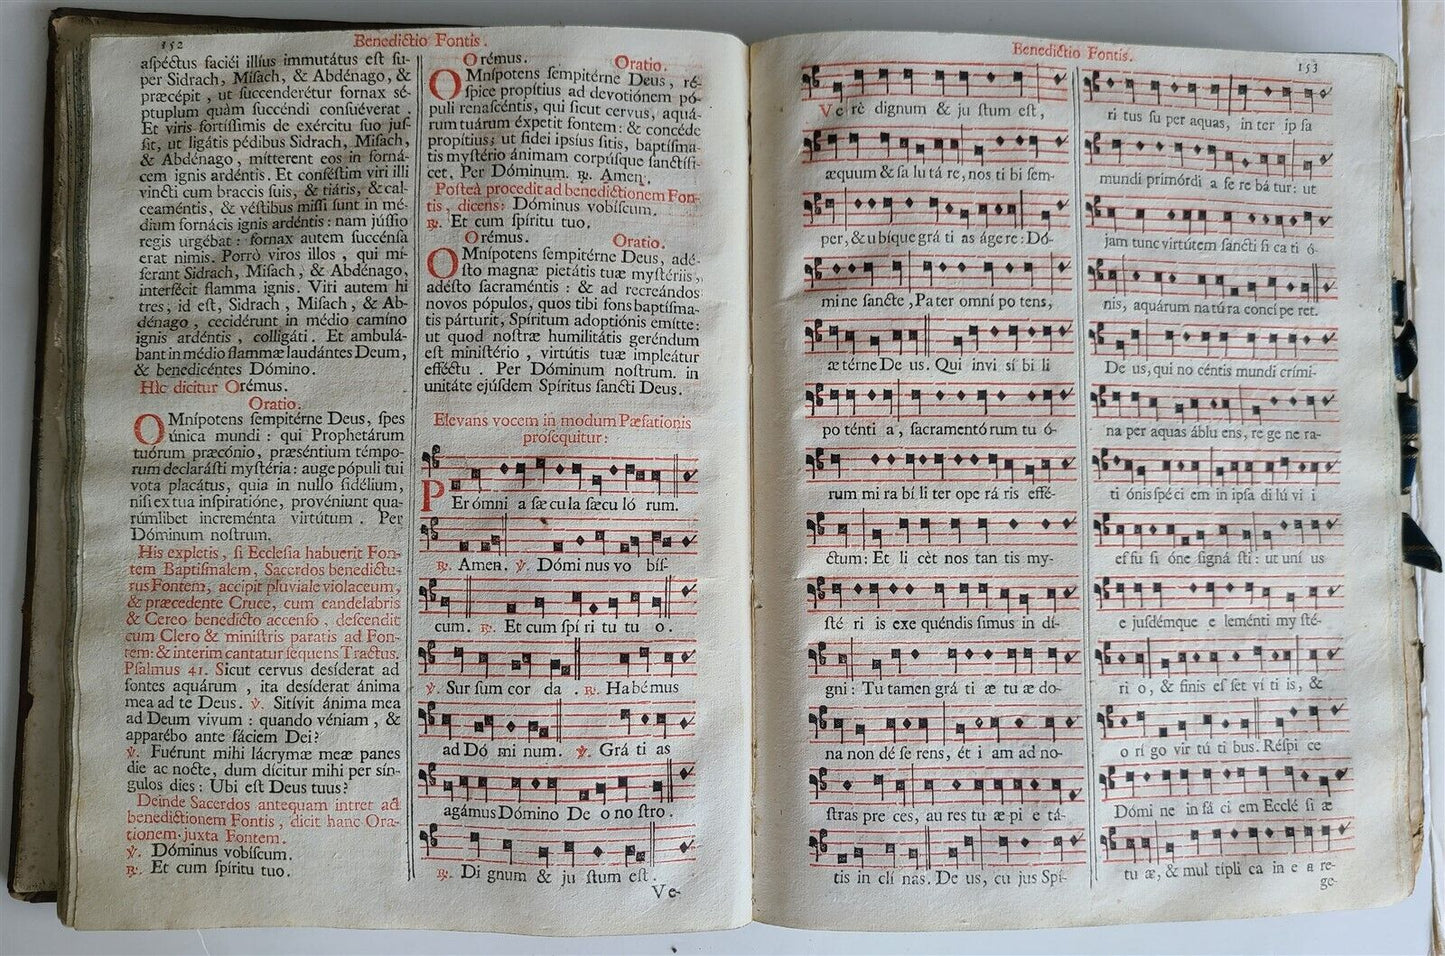 152
Benedictio Fontis.
aſpéctus faciéi illíus immutátus eſt ſu-
per Sidrach, Miſach, & Abdénago, &
præcépit, ut ſuccenderétur fornax ſé-
ptuplum quàm ſuccéndi conſuéverat.
Et viris fortíſſimis de exércitu ſuo juſ-
ſit, ut ligátis pédibus Sidrach, Miſach,
& Abdénago, mítterent eos in forná-
cem ignis ardéntis. Et conféſtim viri illi
vincti cum braccis ſuis, & tiáris, & cal-
ceaméntis, & véſtibus miſſi ſunt in mé-
dium fornácis ignis ardéntis: nam júſſio
regis urgébat: fornax autem ſuccénſa
erat nimis. Porrò viros illos, qui mí-
ſerant Sidrach, Miſach, & Abdénago,
interfécit flamma ignis. Viri autem hi
tres, id eſt, Sidrach, Miſach, & Ab-
dénago, cecidérunt in médio camíno
ignis ardéntis, colligáti. Et ambulá-
bant in médio flammæ laudántes Deum,
& benedicéntes Dómino.
Hîc dicitur Orémus.
Oratio.
OMnípotens ſempitérne Deus, ſpes
única mundi: qui Prophetárum
tuórum præcónio, præséntium témpo-
rum declaráſti myſtéria: auge pópuli tui
vota placátus, quia in nullo fidélium,
niſi ex tua inſpiratióne, provéniunt qua-
rúmlibet increménta virtútum. Per
Dóminum noſtrum.
His expletis, ſi Eccleſia habuerit Fon-
tem Baptiſmalem, Sacerdos benedictu-
rus Fontem, accipit pluviale violaceum,
& præcedente Cruce, cum candelabris
& Cereo benedicto accenſo, deſcendit
cum Clero & miniſtris paratis ad Fon-
tem: & interim cantatur ſequens Tractus.
Pſalmus 41. Sicut cervus desíderat ad
fontes aquárum, ita desíderat ánima
mea ad te Deus. ℣. Sitívit ánima mea
ad Deum vivum: quando véniam, &
apparébo ante fáciem Dei?
℣. Fuérunt mihi lácrymæ meæ panes
die ac nocte, dum dícitur mihi per sín-
gulos dies: Ubi eſt Deus tuus?
Deinde Sacerdos antequam intret ad
benedictionem Fontis, dicit hanc Ora-
tionem juxta Fontem.
℣. Dóminus vobíſcum.
℟. Et cum ſpíritu tuo.
Orémus. Oratio.
OMnípotens ſempitérne Deus, ré-
ſpice propítius ad devotiónem pó-
puli renaſcéntis, qui ſicut cervus, aquá-
rum tuárum éxpetit fontem: & concéde
propítius, ut fídei ipsíus ſitis, baptíſma-
tis myſtério ánimam corpúſque ſanctífi-
cet. Per Dóminum. ℟. Amen.
Poſteà procedit ad benedictionem Fon-
tis, dicens: Dóminus vobíſcum.
℟. Et cum ſpíritu tuo.
Orémus. Oratio.
OMnípotens ſempitérne Deus, adé-
ſto magnæ pietátis tuæ myſtériis,
adéſto ſacraméntis: & ad recreándos
novos pópulos, quos tibi fons baptíſma-
tis párturit, Spíritum adoptiónis emítte:
ut quod noſtræ humilitátis geréndum
eſt miniſtério, virtútis tuæ impleátur
efféctu. Per Dóminum noſtrum. in
unitáte ejúſdem Spíritus ſancti Deus.
Elevans vocem in modum Præfationis
proſequitur:
PEr ómni a ſæ cula ſæcu ló rum.
℟. Amen. ℣. Dómi nus vo bíſ-
cum. ℟. Et cum ſpí ri tu tu o.
℣. Sur ſum cor da. ℟. Habémus
ad Dó mi num. ℣. Grá ti as
agámus Dómino De o no ſtro.
℟. Di gnum & ju ſtum eſt.
Ve-
Benedictio Fontis.
153
Ve rè dignum & ju ſtum eſt,
æquum & ſa lu tá re, nos ti bi ſem-
per, & ubíque grá ti as ágere: Dó-
mi ne ſancte, Pa ter omní po tens,
æ térne De us. Qui invi sí bi li
po ténti a, ſacramentó rum tu ó-
rum mi ra bí li ter ope rá ris effé-
ctum: Et li cèt nos tan tis my-
ſté ri is exe quéndis ſimus in dí-
gni: Tu tamen grá ti æ tu æ do-
na non dé ſe rens, ét i am ad no-
ſtras pre ces, au res tu æ pi e tá-
tis in clí nas. De us, cu jus Spí-
ri tus ſu per aquas, in ter ip ſa
mundi primórdi a fe re bá tur: ut
jam tunc virtútem ſancti fi ca ti ó-
nis, aquárum na tú ra conci pe ret.
De us, qui no céntis mundi crími-
na per aquas áblu ens, re ge ne ra-
ti ónis ſpé ci em in ipſa di lú vi i
ef fu ſi óne ſigná ſti: ut uní us
e juſdémque e leménti my ſté-
ri o, & finis eſ ſet ví ti is, &
o rí go vir tú ti bus. Réſpi ce
Dómi ne in fá ci em Ecclé ſi æ
tu æ, & mul tipli ca in e a re-
ge-